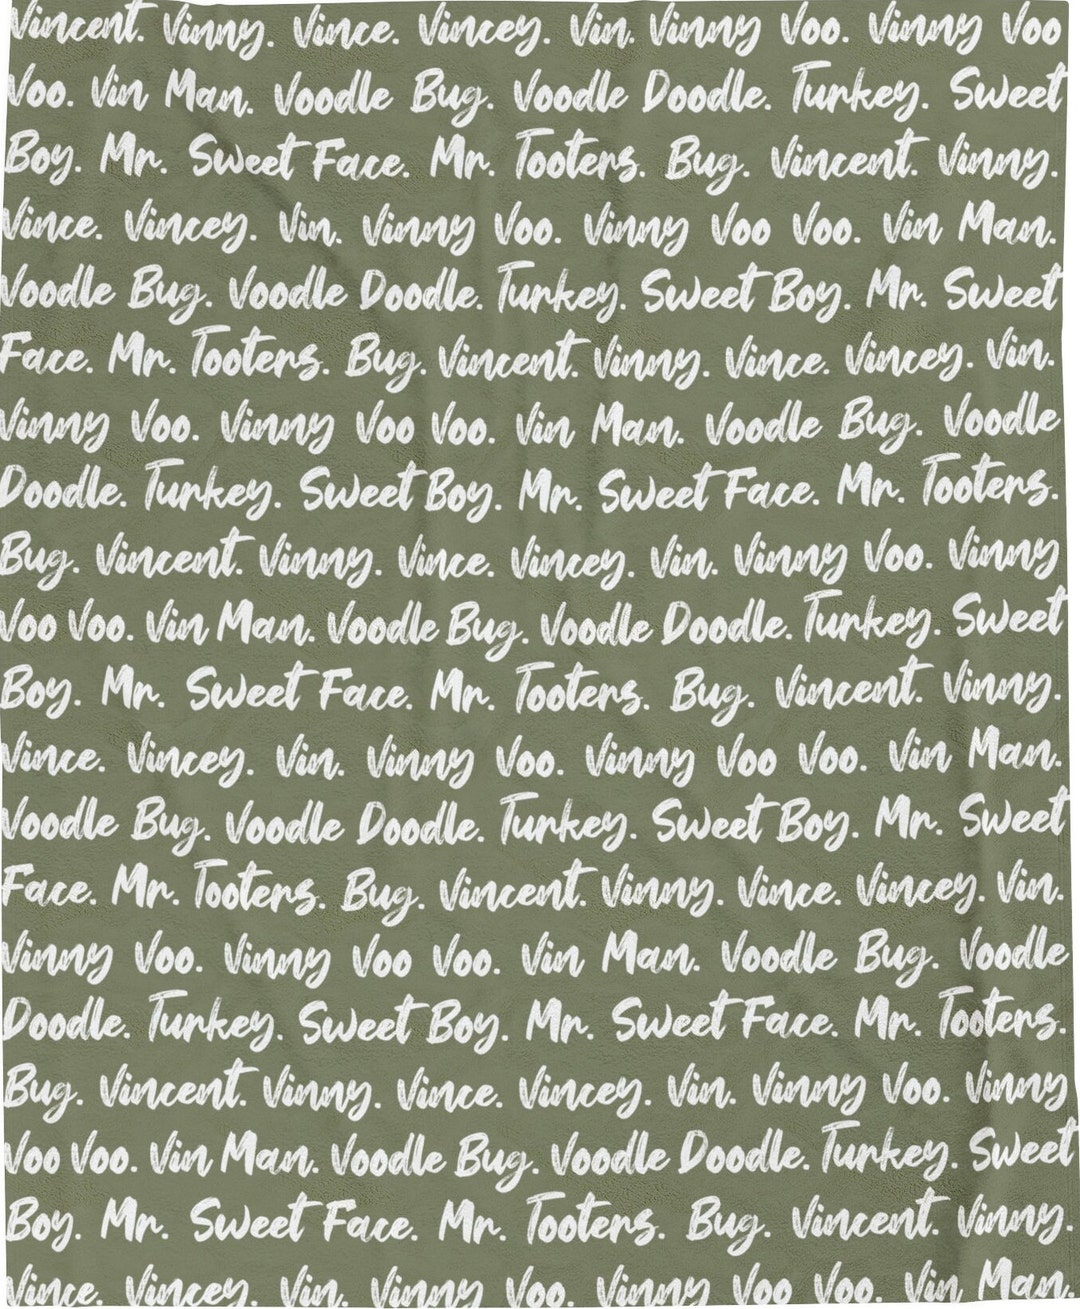 Vincent. Vinny. Vince. Vincey. Vin. Vinny Voo. Vinny Voo
Voo. Vin Man. Voodle Bug. Voodle Doodle. Turkey. Sweet
Boy. Mr. Sweet Face. Mr. Tooters. Bug. Vincent. Vinny.
Vince. Vincey. Vin. Vinny Voo. Vinny Voo Voo. Vin Man.
Voodle Bug. Voodle Doodle. Turkey. Sweet Boy. Mr. Sweet
Face. Mr. Tooters. Bug. Vincent. Vinny. Vince. Vincey. Vin.
Vinny Voo. Vinny Voo Voo. Vin Man. Voodle Bug. Voodle
Doodle. Turkey. Sweet Boy. Mr. Sweet Face. Mr. Tooters.
Bug. Vincent. Vinny. Vince. Vincey. Vin. Vinny Voo. Vinny
Voo Voo. Vin Man. Voodle Bug. Voodle Doodle. Turkey. Sweet
Boy. Mr. Sweet Face. Mr. Tooters. Bug. Vincent. Vinny.
Vince. Vincey. Vin. Vinny Voo. Vinny Voo Voo. Vin Man.
Voodle Bug. Voodle Doodle. Turkey. Sweet Boy. Mr. Sweet
Face. Mr. Tooters. Bug. Vincent. Vinny. Vince. Vincey. Vin.
Vinny Voo. Vinny Voo Voo. Vin Man. Voodle Bug. Voodle
Doodle. Turkey. Sweet Boy. Mr. Sweet Face. Mr. Tooters.
Bug. Vincent. Vinny. Vince. Vincey. Vin. Vinny Voo. Vinny
Voo Voo. Vin Man. Voodle Bug. Voodle Doodle. Turkey. Sweet
Boy. Mr. Sweet Face. Mr. Tooters. Bug. Vincent. Vinny.
Vince. Vincey. Vin. Vinny Voo. Vinny Voo Voo. Vin Man.